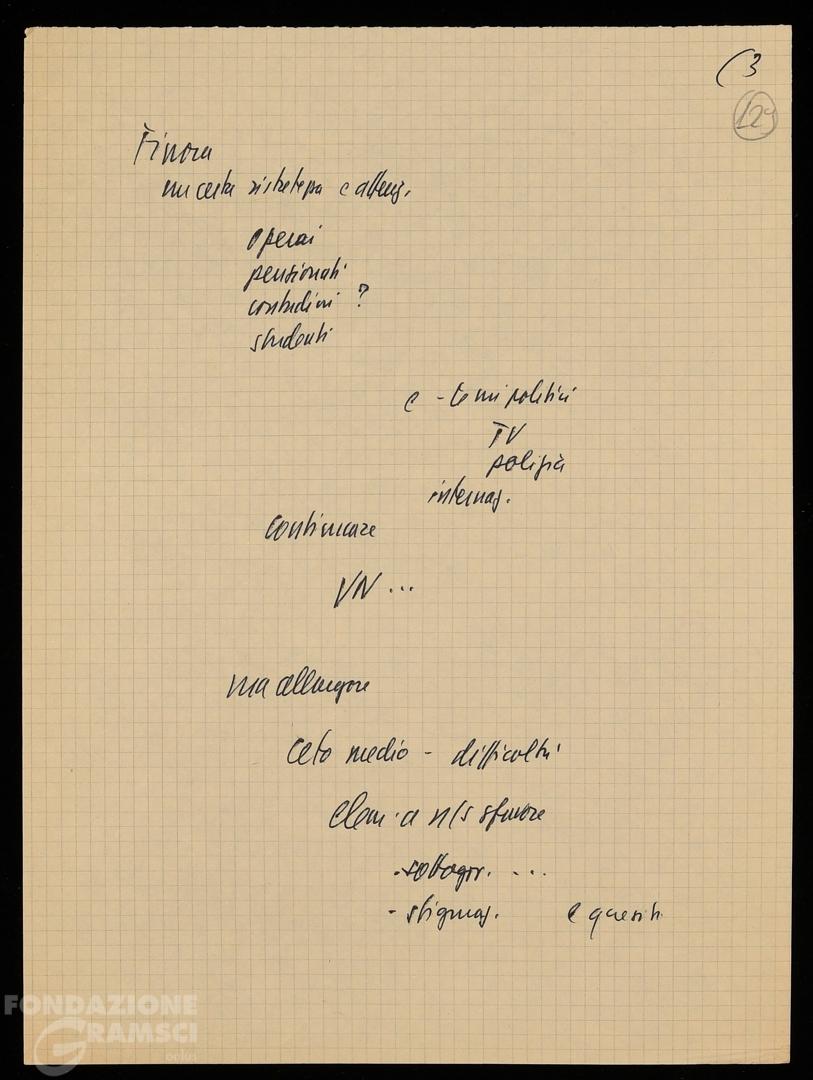 (3
129
Finora
una certa ristretezza e attenz.
operai
pensionati
contadini ?
studenti
e - temi politici
TV
polizia
internaz.
continuare
VN ...
ma allargare
Ceto medio - difficoltà
Elem. a n/s sfavore
- sottogov. ...
- stignaz. e quesiti
FONDAZIONE
GRAMSCI
onlus